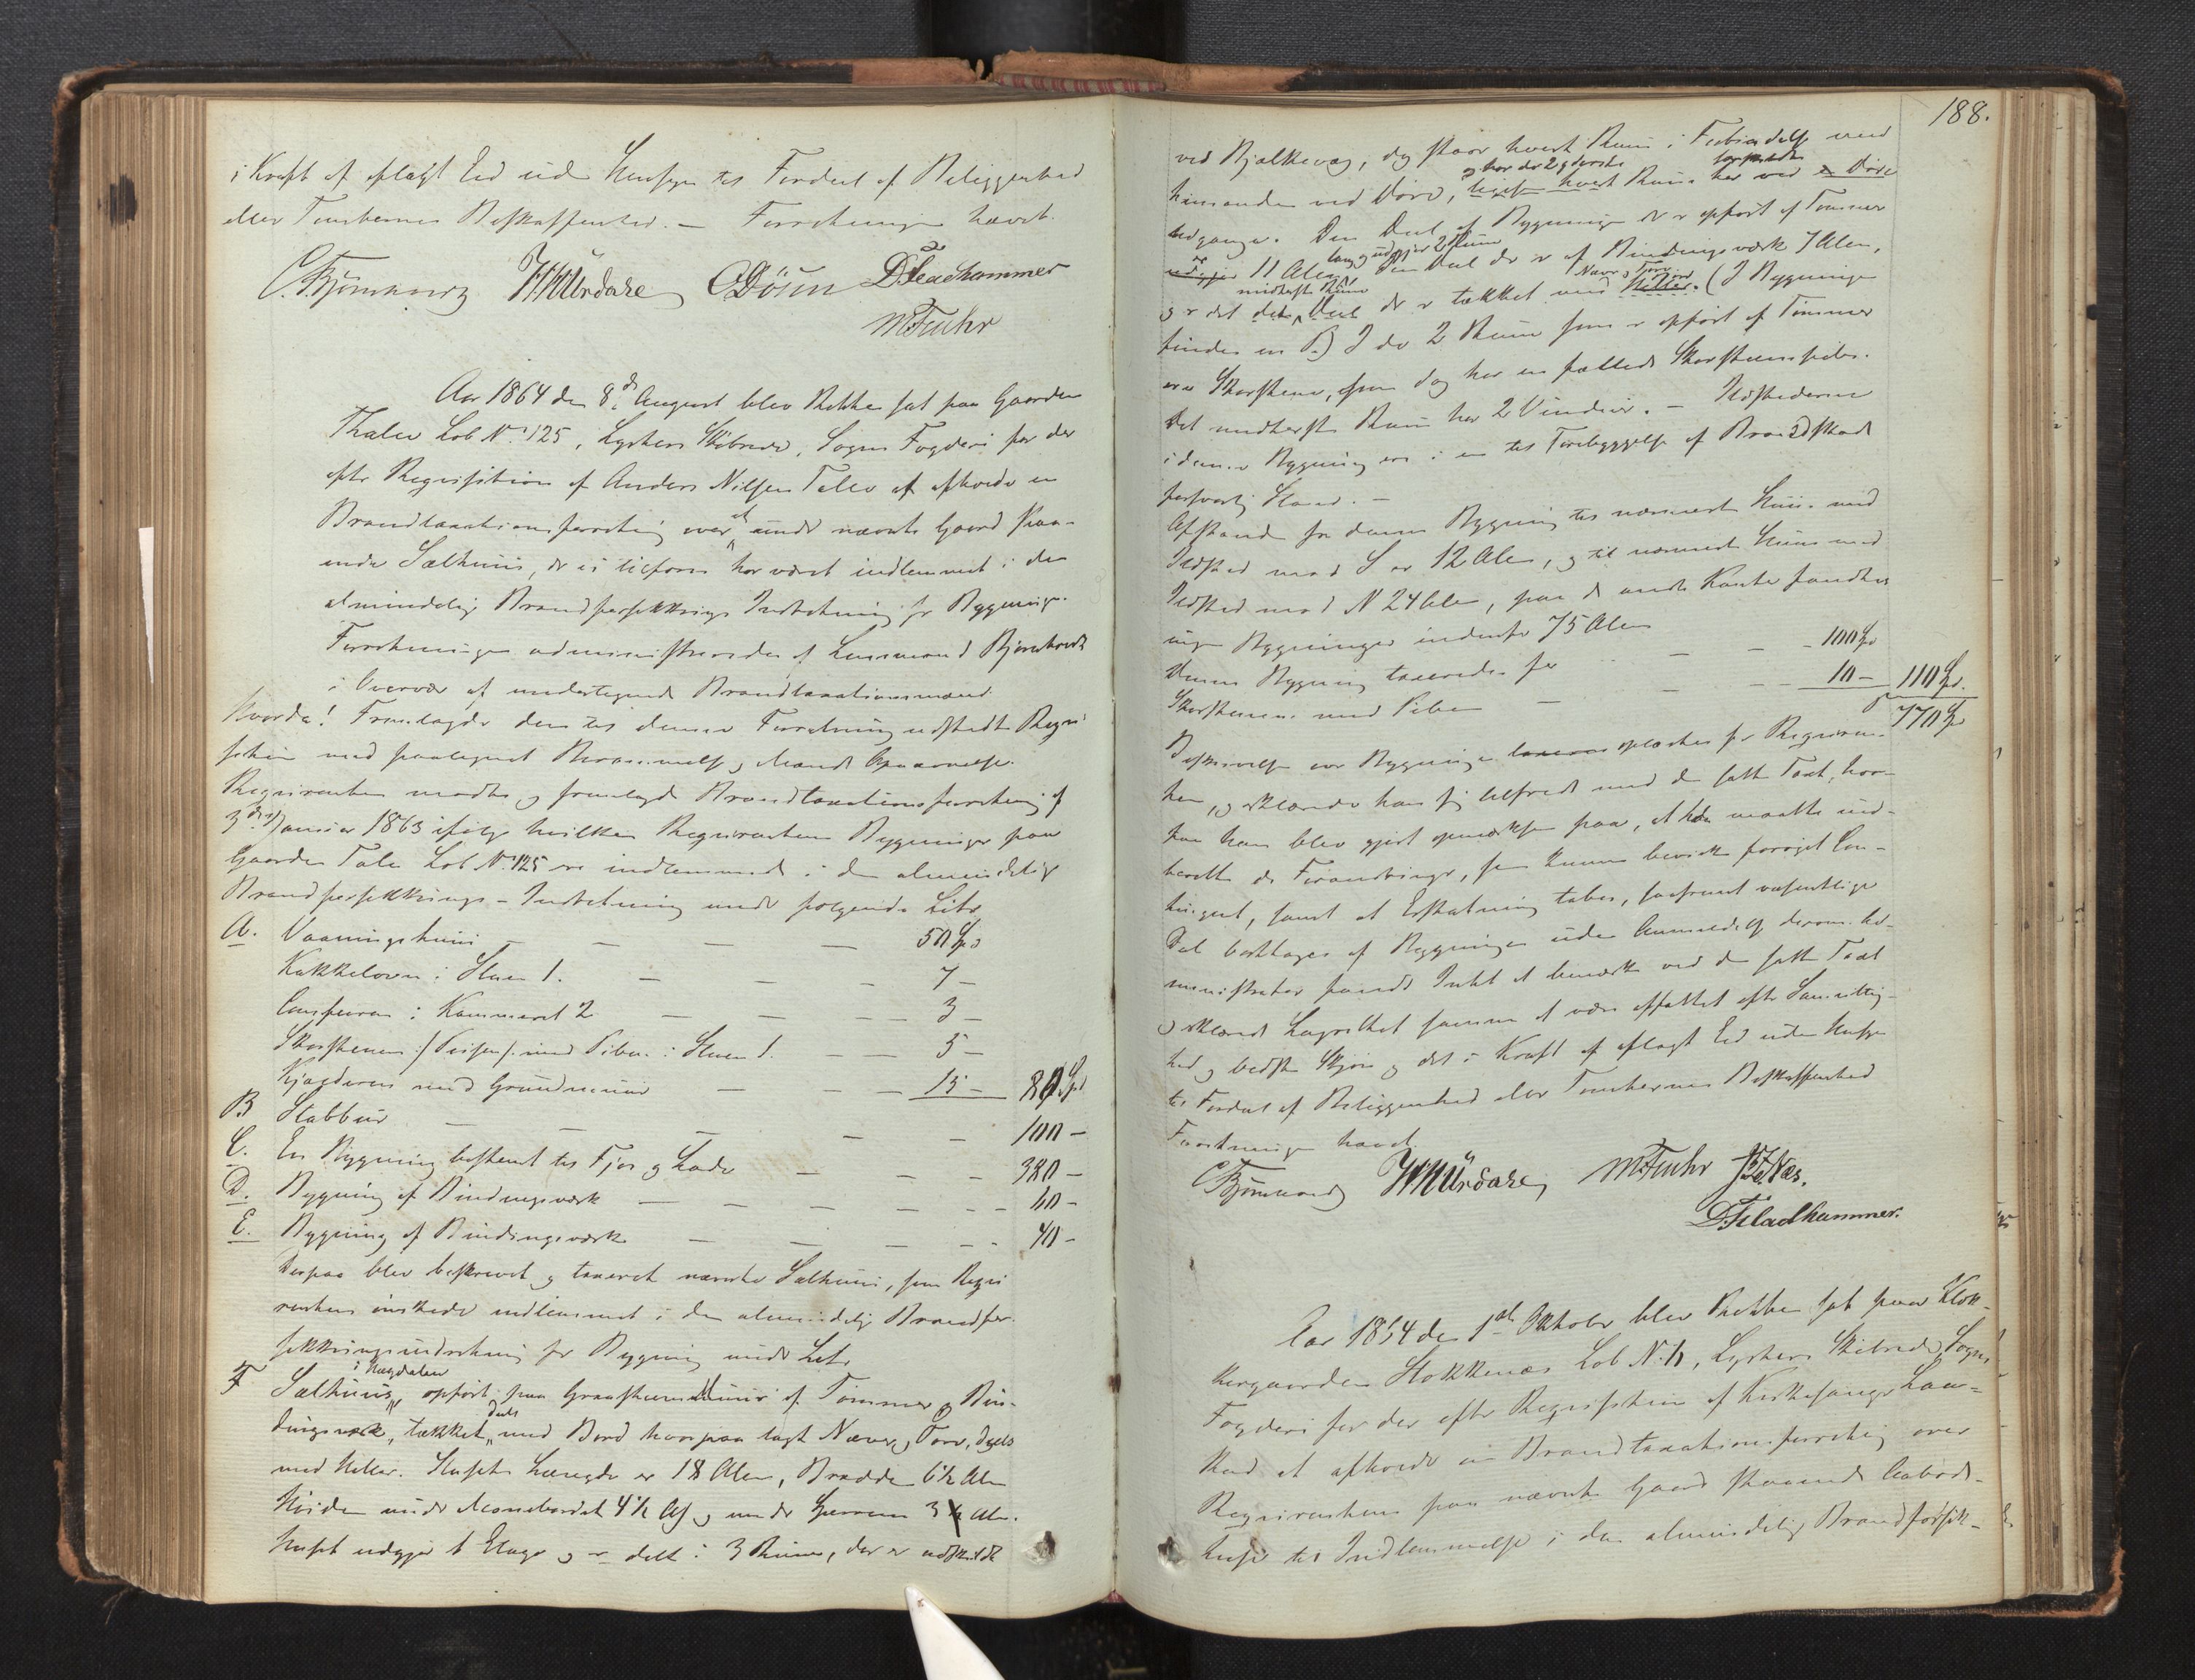 i Kraft af aflagt Eed uden Hensyn til Fordeel af Beliggenhed
eller Tomternes Beskaffenhed. — Forretningen hævet.
C. Bjørnhordz HMUrdahl C Döm DKladhammer
MFuhr
Aar 1864 den 8de August blev Retten sat paa Gaarden
Thale Løb No 125, Lysters Skibrede, Sogns Fogderi for der
efter Reqvisition af Anders Nilsen Tale at afholde en
Brandtaxationsforretning over et under nævnte Gaard staa-
ende Sælhuus, der ei tilforn har været indlemmet i den
almindelige Brandforsikkrings Indretning for Bygninger.
Forretningen administreredes af Lensmand
i Overvær af undertegnede Brandtaxationsmænd.
Hvorda! Fremlagdes den til denne Forretning udstedte Reqvi-
sition med paategnet Berammelse og Mænds Opnævnelse.
Reqvirenten mødte og fremlagde Brandtaxationsforretning af
3die Januar 1863 ifølge hvilken Reqvirentens Bygninger paa
Gaarden Tale Løb No 125 ere indlemmede i den almindelige
Brandforsikkrings-Indretning under følgende Litr.
A. Vaaningshuus — — — — 50 Spd
Kakkelovn i Stuen 1. — — — 7 —
i Kammeret 2 — — — 3 —
Skorstenen /: Peisen :/ med Piben i Stuen 1. — — 5 —
Kjælderen med Grundmuur — — 15 — 80 Spd
B Stabbuur — — — — — 100 —
C. En Bygning bestemt til Fjøs og Lade — — — 380 —
D. Bygning af Bindingsværk — — — — — 60 —
E. Bygning af Bindingsværk — — — — — 40 —
Derpaa blev beskrevet og taxeret nævnte Sælhuus, som Reqvi
renten ønskede indlemmet i den almindelige Brandfor-
sikkringsindretning for Bygning under Litr.
i
F Sælhuus, opført paa Graasteensmuur af Tømmer og Bin-
deels
dingsværk, tækket med Bord hvorpaa lagt Næver og Torv, deels
med Heller. Husets Længde er 18 Alen, Bredde 6½ Alen
Høiden under Mønebordet 4½ Al og under Sperren 3 Alen.
Huset udgjør 1 Etage og er deelt i 3 Rum, der er adskilte
188.
ved Bjælkevæg, dog staar hvert Rum i Forbindelse med
og har de 2 yderste
hinanden ved Døre, hvert Rum har ved en Dør
udgange. Den Deel af Bygningen der er opført af Tømmer
er lang og udgjør 2 Rum
udgjør 11 Alen, den Deel der er af Bindingsværk 7 Alen,
midterste Rum Næver og Torv
og er det den Deel der er tækket med Heller. (I Bygningen
findes en B.) I de 2 Rum som er opført af Tømmer
ere Skorstene, som dog har en fælleds Skorsteenspibe.
Det midterste Rum har 2 Vinduer. — Ildstederne
i denne Bygning ere i en til Forebyggelse af Brandskade
forsvarlig Stand. —
Afstanden fra denne Bygning til nærmeste Huus med
Ildsted mod S er 12 Alen, og til nærmeste Huus med
Ildsted mod N 24 Alen, paa de andre Kanter fandtes
ingen Bygninger indenfor 75 Alen
Denne Bygning taxeredes for — — — 100 Spd
Skorstenen med Piben — — — 10 — 110 Spd.
770 Spd
Beskrivelsen over Bygningen oplæstes for Reqviren-
ten, og erklærede han sig tilfreds med den satte Taxt, hvor-
hos han blev gjort opmærksom paa, at han maatte ind-
berette de Forandringer, som kunne bevirke forøget Con-
tingent, samt at Erstatning tabes, saafremt væsentlige
Del borttages af Bygningen uden Anmeldelse derom. Ad-
ministrator fandt Intet at bemærke ved den satte Taxt
og erklærede Lagrettet samme at være affattet efter Samvittig-
hed og bedste Skjøn og det i Kraft af aflagt Eed uden Hensyn
til Fordeel af Beliggenhed eller Tomternes Beskaffenhed
Forretningen hævet.
C Bjørnhordz HMUrdahl MFuhr Næs.
DKladhammer.
Aar 1864 den 1ste Oktober blev Retten sat paa Klok-
kergaarden Stokkenæs Løb No 6, Lysters Skibrede, Sogns
Fogderi for der efter Reqvisition af Kirkesanger Laa-
stad at afholde en Brandtaxationsforretning over
Reqvirentens paa nævnte Gaard staaende Aabods-
huse til Indlemmelse i den almindelige Brandforsik-